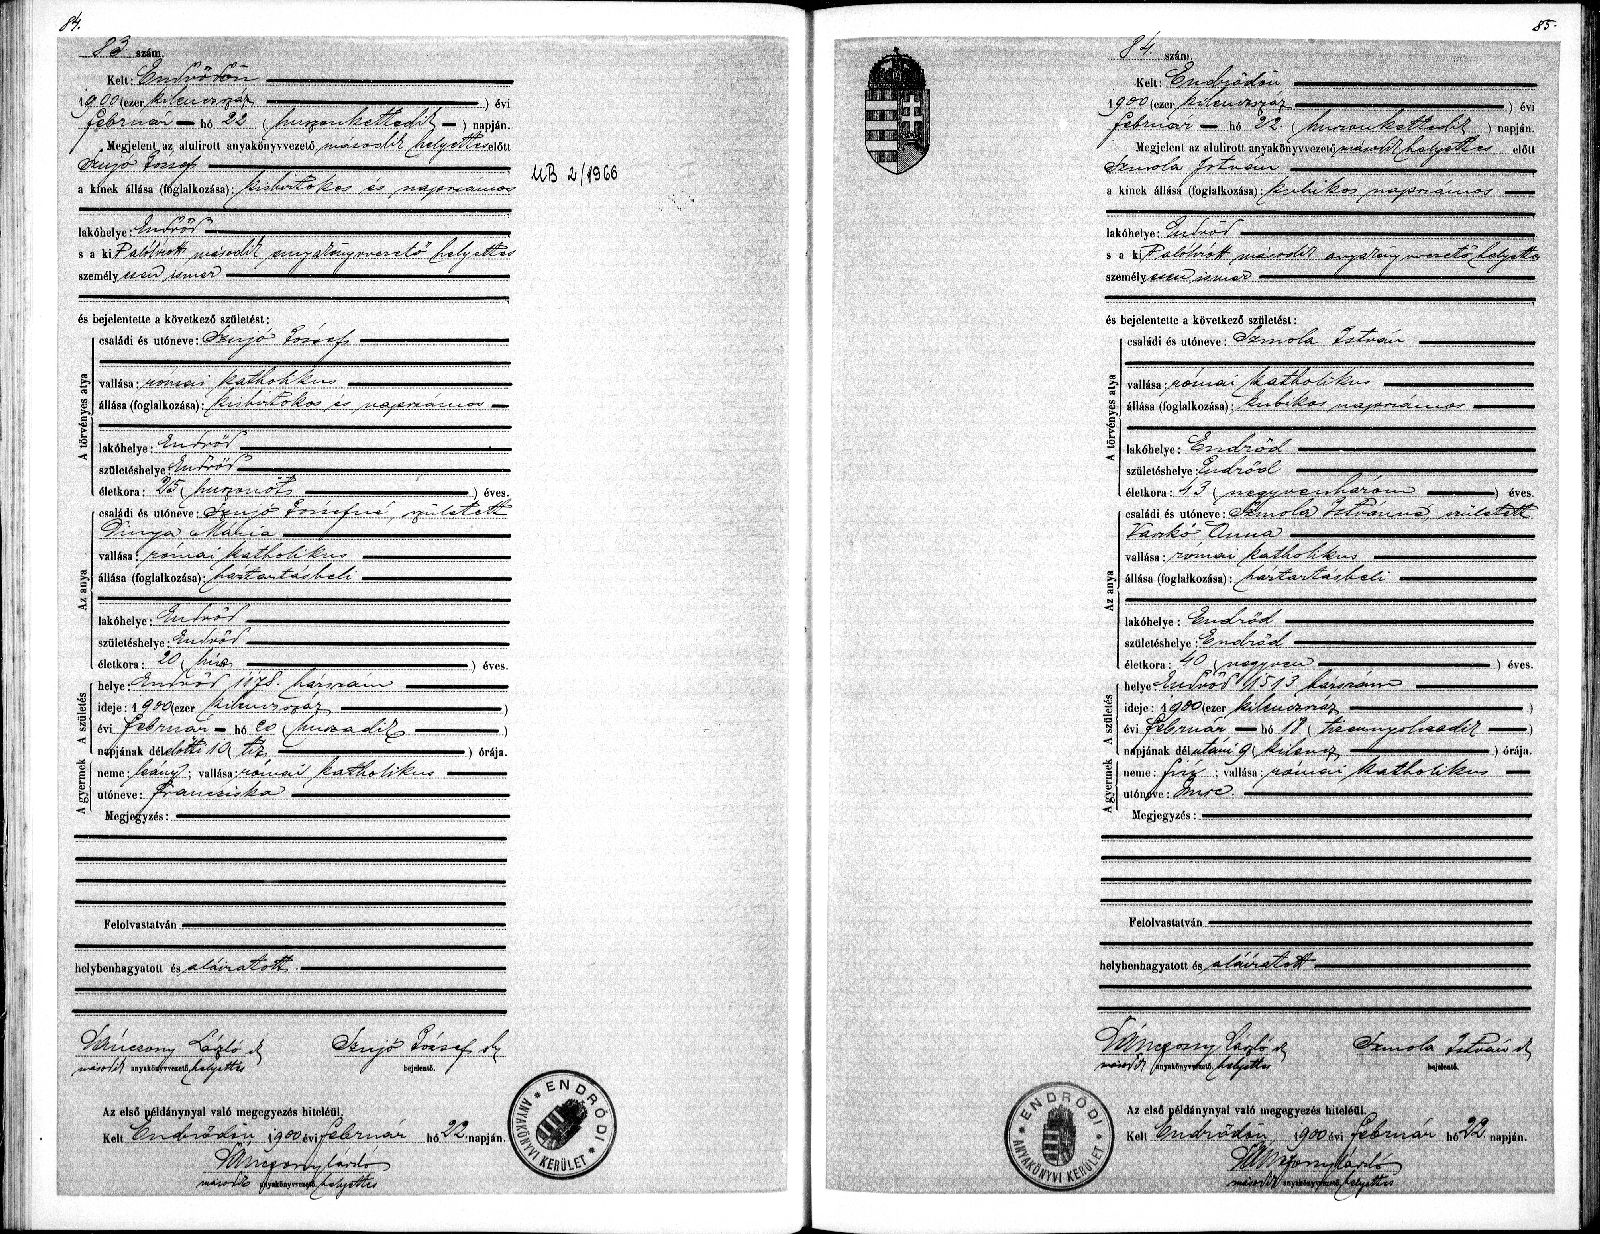 84.
83 szám.
Kelt: Endrődön
1900 (ezer kilenczszáz ) évi
február hó 22 (huszonkettedik ) napján.
Megjelent az alulirott anyakönyvvezető második helyettes előtt
Szujó József
a kinek állása (foglalkozása): kisbirtokos és napszámos
lakóhelye: Endrőd
s a ki
második anyakönyvvezető helyettes
személyesen ismer
és bejelentette a következő születést:
A törvényes atya
családi és utóneve: Szujó József
vallása: római katholikus
állása (foglalkozása): kisbirtokos és napszámos
lakóhelye: Endrőd
születéshelye Endrőd
életkora: 25 (huszonöt ) éves.
Az anya
családi és utóneve: Szujó Józsefné, született
Dinya Mária
vallása: római katholikus
állása (foglalkozása): háztartásbeli
lakóhelye: Endrőd
születéshelye: Endrőd
életkora: 20 (húsz ) éves.
A születés
helye: Endrőd 1178. házszám
ideje: 1900 (ezer kilenczszáz )
évi február hó 20 (huszadik )
napjának délelőtti 10 (tíz ) órája.
A gyermek
neme: leány; vallása: római katholikus
utóneve: Francziska
Megjegyzés:
Felolvastatván
helybenhagyatott és aláiratott.
László sk
Szujó József sk
második anyakönyvvezető helyettes
bejelentő.
Az első példánynyal való megegyezés hiteléül.
Kelt Endrődön 1900 évi február hó 22 napján.
László
második anyakönyvvezető helyettes
ENDRŐDI
ANYAKÖNYVI KERÜLET
MB 2/1966
85.
84. szám.
Kelt: Endrődön
1900 (ezer kilenczszáz ) évi
február hó 22. (huszonkettedik ) napján.
Megjelent az alulirott anyakönyvvezető második helyettes előtt
Szmola István
a kinek állása (foglalkozása): kubikos napszámos
lakóhelye: Endrőd
s a ki
második anyakönyvvezető helyettes
személyesen ismer
és bejelentette a következő születést:
A törvényes atya
családi és utóneve: Szmola István
vallása: római katholikus
állása (foglalkozása): kubikos napszámos
lakóhelye: Endrőd
születéshelye: Endrőd
életkora: 43 (negyvenhárom ) éves.
Az anya
családi és utóneve: Szmola Istvánné, született
Vaskó Anna
vallása: római katholikus
állása (foglalkozása): háztartásbeli
lakóhelye: Endrőd
születéshelye: Endrőd
életkora: 40 (negyven ) éves.
A születés
helye: Endrőd 1513 házszám
ideje: 1900 (ezer kilenczszáz )
évi február hó 18 (tizennyolczadik )
napjának délutáni 9 (kilencz ) órája.
A gyermek
neme: fiú; vallása: római katholikus
utóneve: Imre.
Megjegyzés:
Felolvastatván
helybenhagyatott és aláiratott
László sk
Szmola István sk
második anyakönyvvezető helyettes
bejelentő.
Az első példánynyal való megegyezés hiteléül.
Kelt Endrődön 1900 évi február hó 22 napján.
László
második anyakönyvvezető helyettes
ENDRŐDI
ANYAKÖNYVI KERÜLET